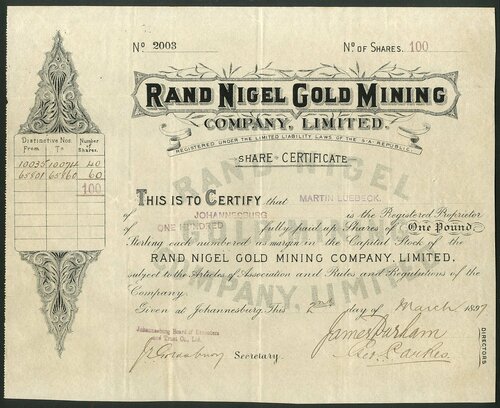 No 2003
No. OF SHARES. 100
RAND NIGEL GOLD MINING
COMPANY, LIMITED.
REGISTERED UNDER THE LIMITED LIABILITY LAWS OF THE S. A. REPUBLIC.
SHARE CERTIFICATE
Distinctive Nos. Number of Shares.
From To
10035 100714 40
65801 65860 60
100
RAND NIGEL
GOLD MINING
COMPANY, LIMITED
THIS IS TO CERTIFY that MARTIN LUEBECK.
of JOHANNESBURG is the Registered Proprietor
of ONE HUNDRED fully paid up Shares of One Pound
Sterling each numbered as margin in the Capital Stock of the
RAND NIGEL GOLD MINING COMPANY, LIMITED.
subject to the Articles of Association and Rules and Regulations of the
Company.
Given at Johannesburg. This 2nd day of March 1897
Johannesburg Board of Executors
and Trust Co., Ltd.
Secretary.
James Durham
DIRECTORS